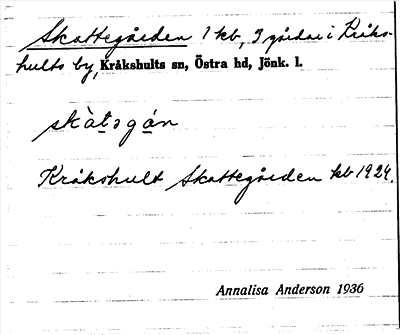 Skattegården 1 kb, 9 gårdar i Kråks-
hults by, Kråkshults sn, Östra hd, Jönk. l.
skàtəgán
Kråkshult Skattegården kb 1924.
Annalisa Anderson 1936